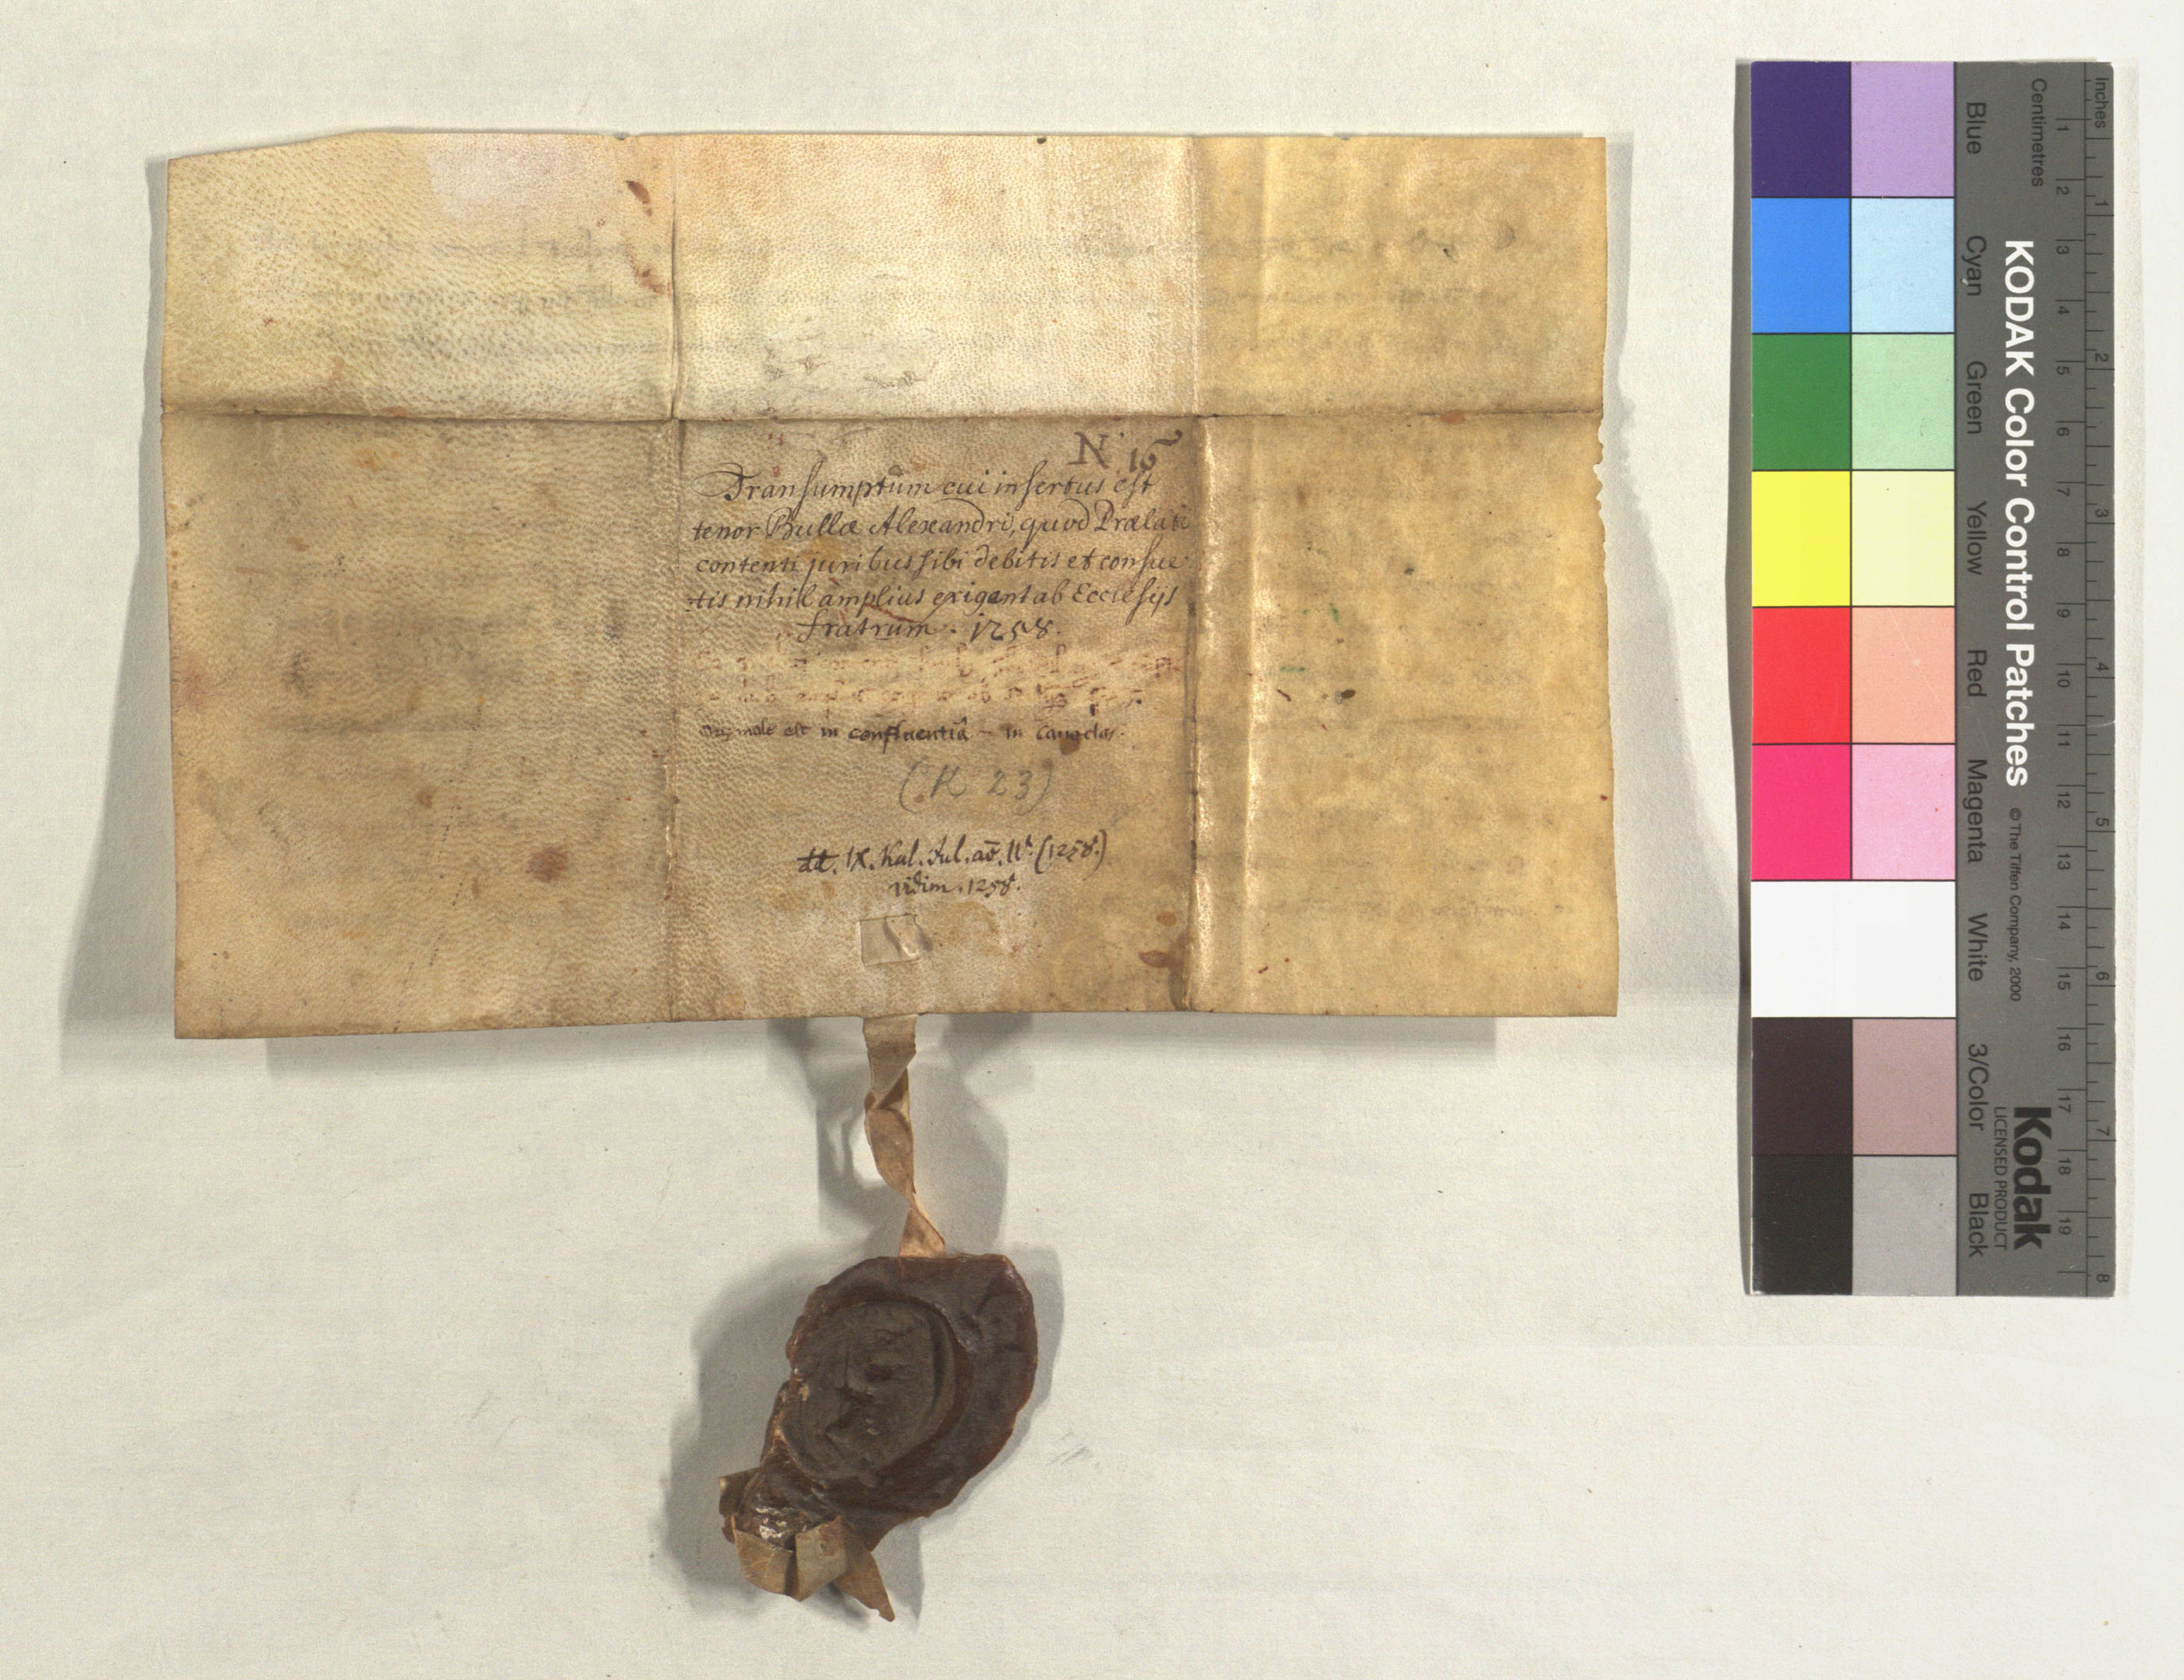 N. 16
Transumptum cui insertus est
tenor Bullæ Alexandri, quod Prælati
contenti juribus sibi debitis et consue-
tis nihil amplius exigant ab Ecclesijs
fratrum. 1258.
Originale est in confluentiâ - in
(K 23)
dd. IX. Kal. Jul. aō. IVt. (1258.)
vidim. 1258.
Inches
Centimetres
1 2 3 4 5 6 7 8 9 10 11 12 13 14 15 16 17 18 19
1 2 3 4 5 6 7 8
KODAK Color Control Patches © The Tiffen Company, 2000
Kodak
LICENSED PRODUCT
Blue Cyan Green Yellow Red Magenta White 3/Color Black